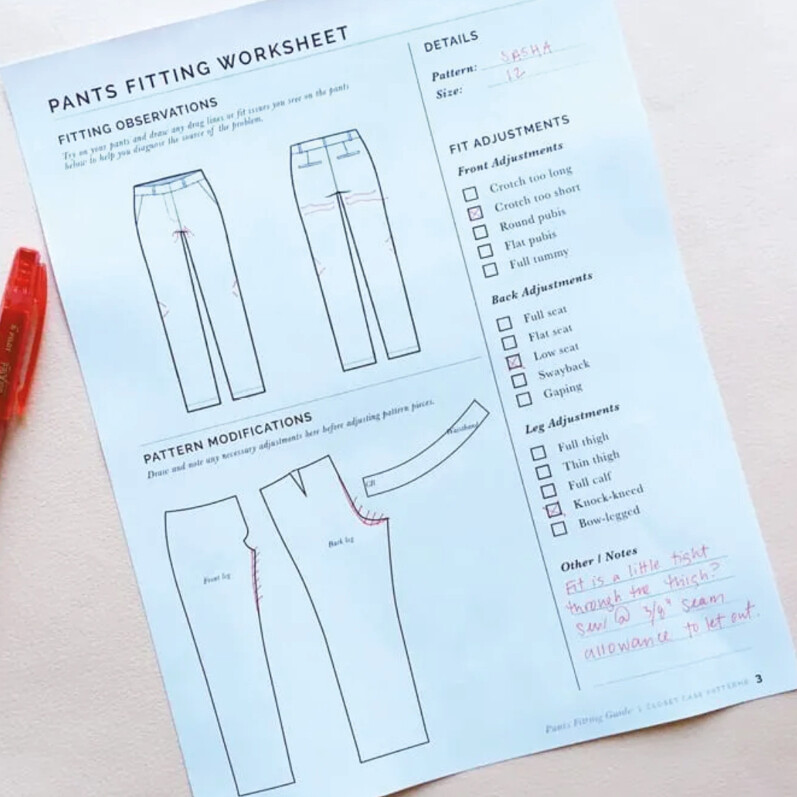 PANTS FITTING WORKSHEET
FITTING OBSERVATIONS
Try on your pants and draw any drag lines or fit issues you see on the pants
below to help you diagnose the source of the problem.
PATTERN MODIFICATIONS
Draw and note any necessary adjustments here before adjusting pattern pieces.
Waistband
CB
Back leg
Front leg
DETAILS
Pattern: SASHA
Size: 12
FIT ADJUSTMENTS
Front Adjustments
Crotch too long
Crotch too short
Round pubis
Flat pubis
Full tummy
Back Adjustments
Full seat
Flat seat
Low seat
Swayback
Gaping
Leg Adjustments
Full thigh
Thin thigh
Full calf
Knock-kneed
Bow-legged
Other / Notes
Fit is a little tight
through the thigh?
sew @ 3/8" seam
allowance to let out.
Pants Fitting Guide | CLOSET CASE PATTERNS 3